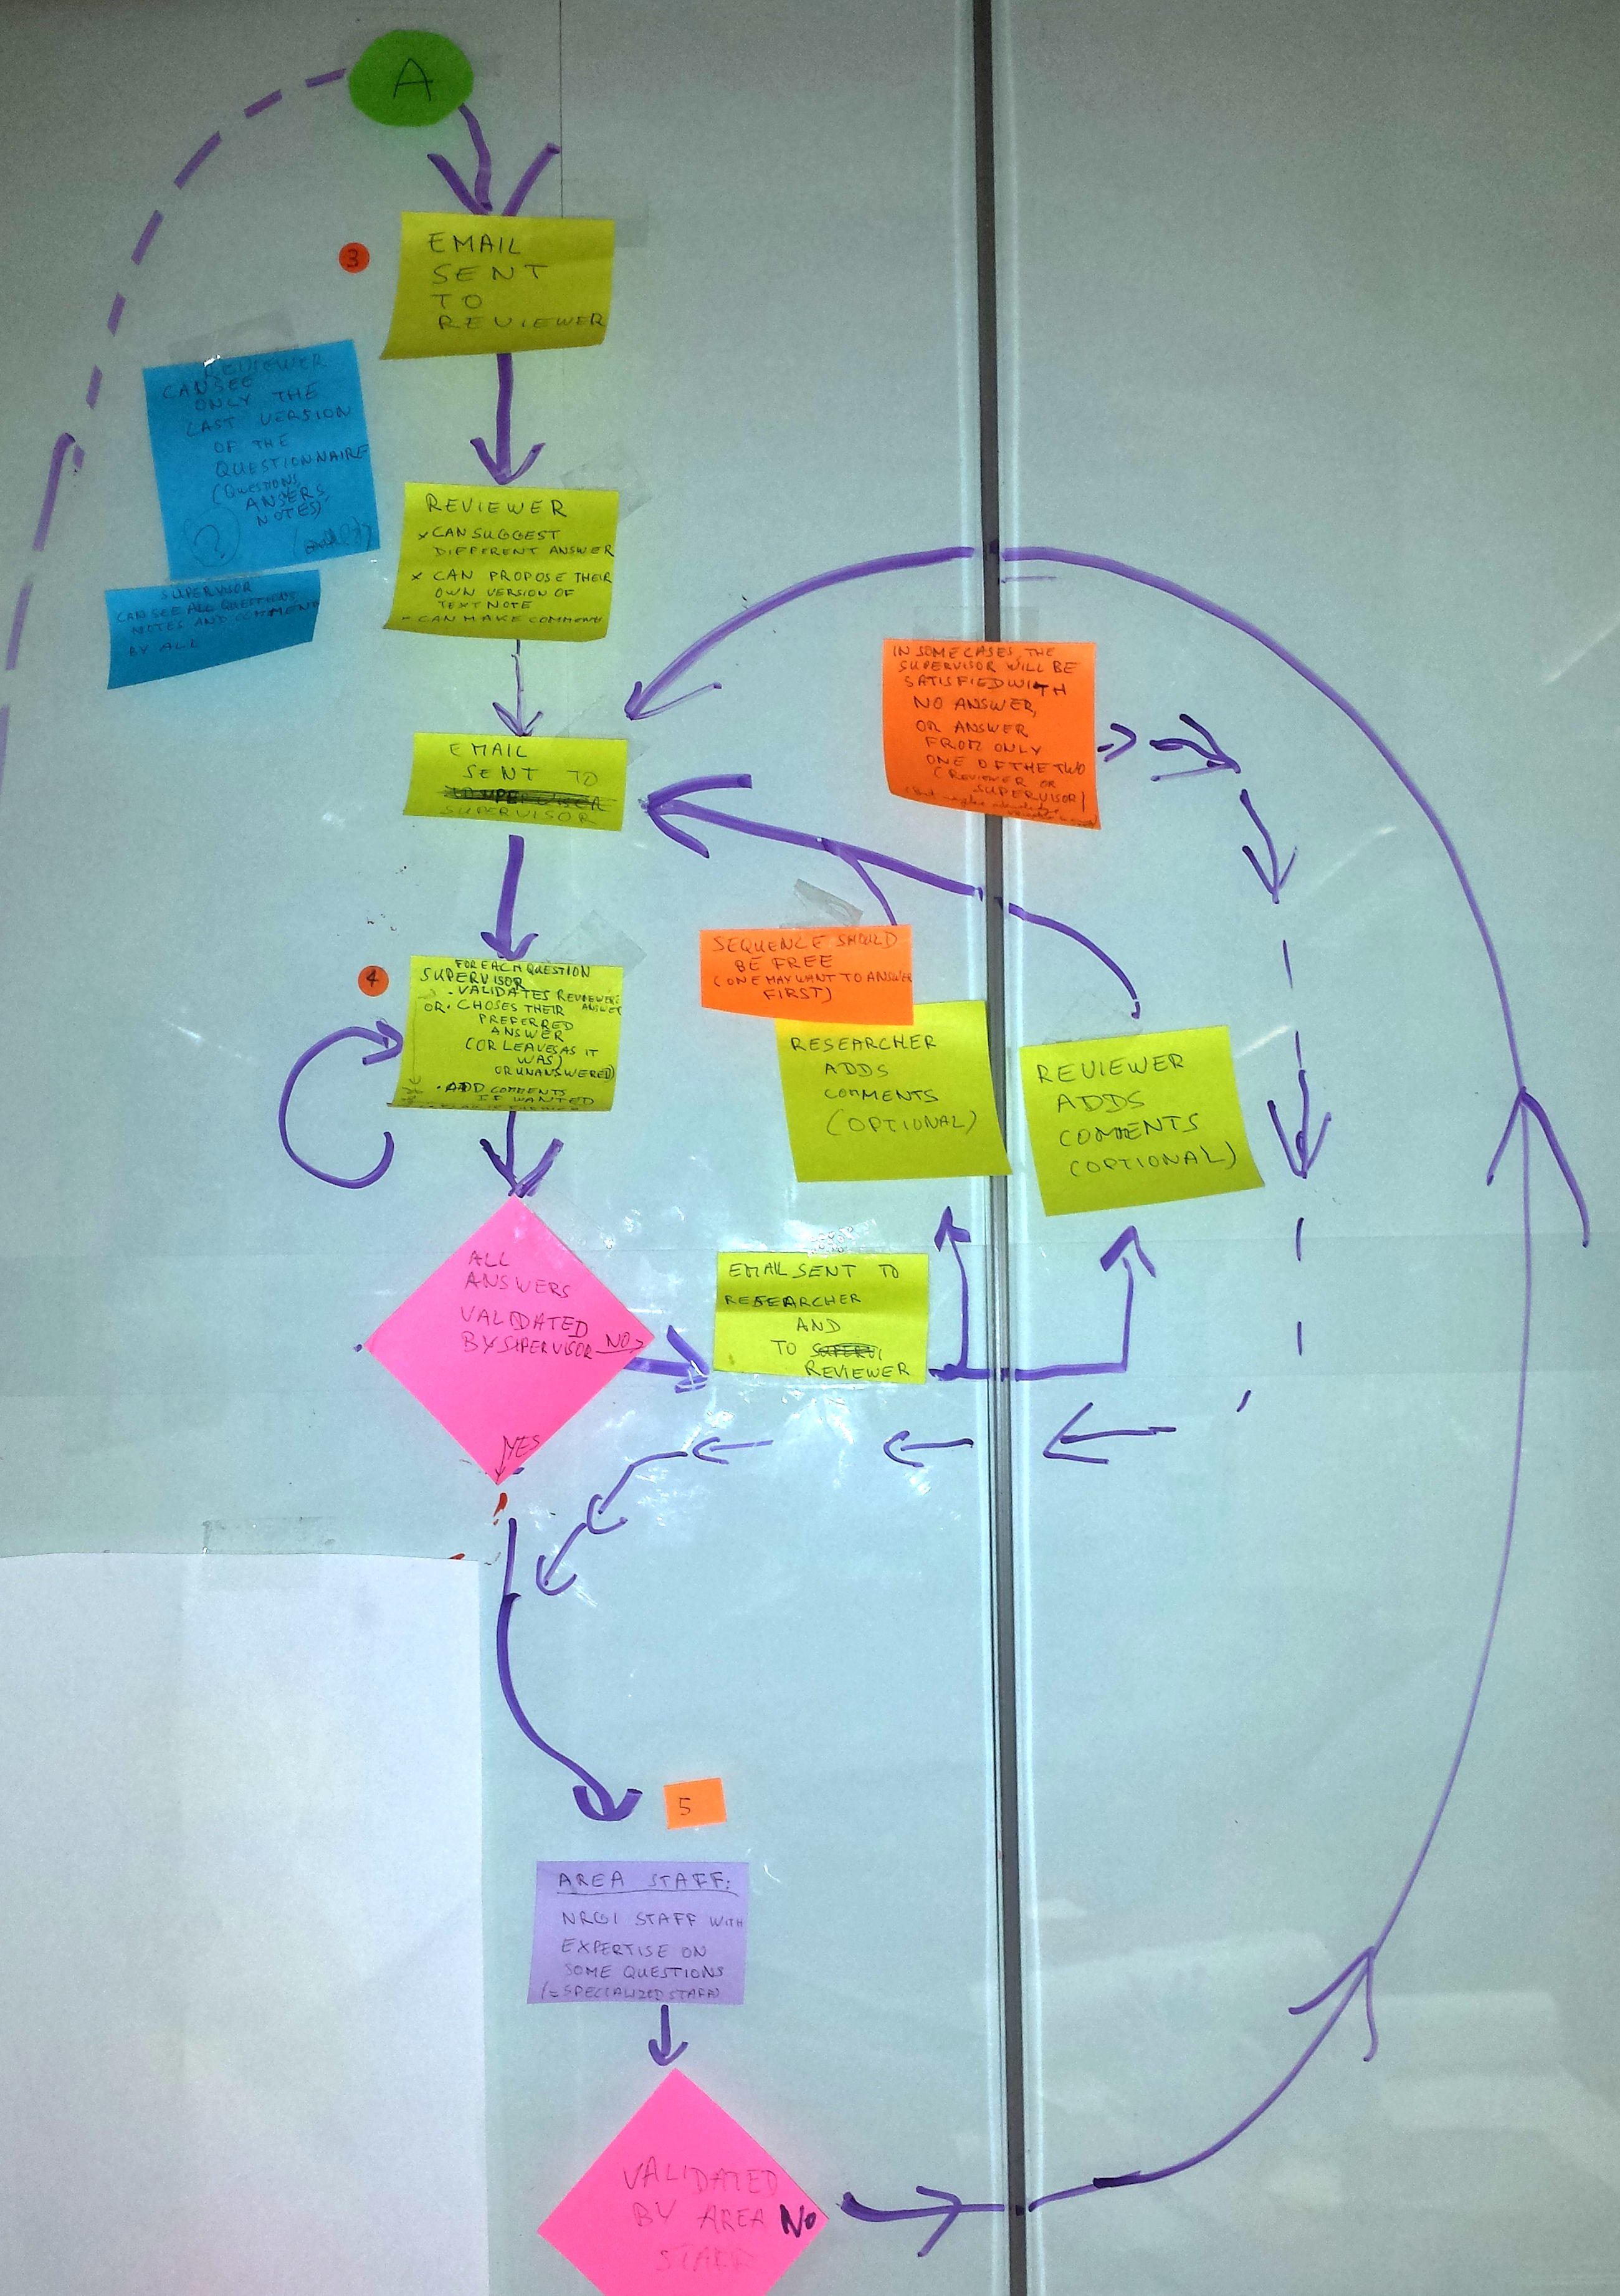 A
3
EMAIL
SENT
TO
REVIEWER
REVIEWER
CAN SEE
ONLY THE
LAST VERSION
OF THE
QUESTIONNAIRE
(QUESTIONS,
ANSERS,
NOTES)
?
SUPERVISOR
CAN SEE ALL QUESTIONS
NOTES AND COMMENTS
BY ALL
REVIEWER
x CAN SUGGEST
DIFFERENT ANSWER
x CAN PROPOSE THEIR
OWN VERSION OF
TEXT NOTE
- CAN MAKE COMMENTS
EMAIL
SENT TO
SUPERVISOR
IN SOME CASES, THE
SUPERVISOR WILL BE
SATISFIED WITH
NO ANSWER,
OR ANSWER
FROM ONLY
ONE OF THE TWO
(REVIEWER OR
SUPERVISOR)
4
FOR EACH QUESTION
SUPERVISOR
- VALIDATES REVIEWER'S
ANSWER
OR. CHOSES THEIR
PREFERRED
ANSWER
(OR LEAVES AS IT
WAS)
OR UNANSWERED)
. ADD COMMENTS
IF WANTED
SEQUENCE SHOULD
BE FREE
(ONE MAY WANT TO ANSWER
FIRST)
RESEARCHER
ADDS
COMMENTS
(OPTIONAL)
REVIEWER
ADDS
COMMENTS
(OPTIONAL)
ALL
ANSWERS
VALIDATED
BY SUPERVISOR NO
YES
EMAIL SENT TO
RESEARCHER
AND
TO
REVIEWER
5
AREA STAFF:
NRGI STAFF WITH
EXPERTISE ON
SOME QUESTIONS
(= SPECIALIZED STAFF)
VALIDATED
BY AREA NO
STAFF